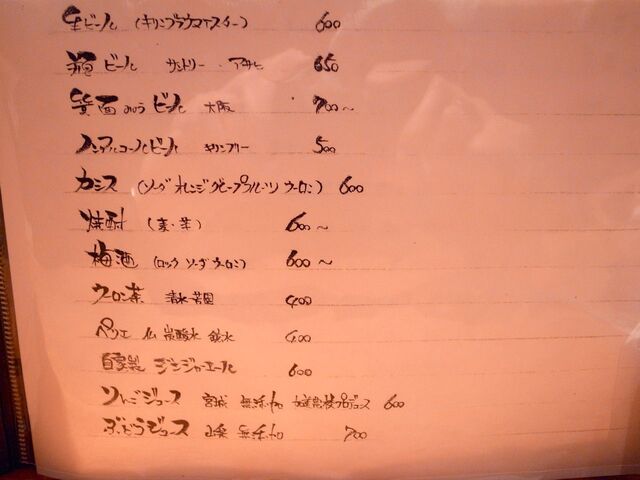 生ビール (キリンブラウマイスター) 600
瓶ビール サントリー・アサヒ 650
箕面 ビール 大阪 700〜
ノンアルコールビール キリンフリー 500
カシス (ソーダ オレンジ グレープフルーツ ウーロン) 600
焼酎 (麦・芋) 600〜
梅酒 (ロック ソーダ ウーロン) 600〜
ウーロン茶 400
ペリエ 仏 炭酸水 鉱水 400
自家製 ジンジャエール 600
りんごジュース 宮城 無添加 プロデュース 600
ぶどうジュース 無添加 700